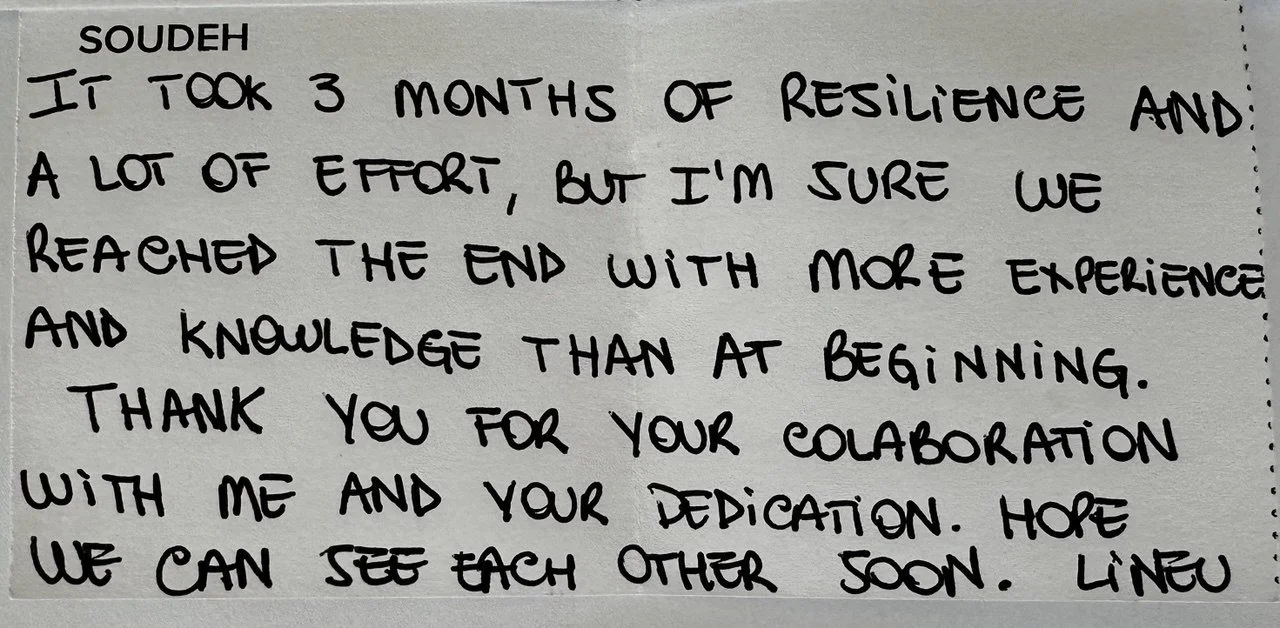 SOUDEH
IT TOOK 3 MONTHS OF RESiLiENCE AND
A LOT OF EFFORT, BUT I'M SURE WE
REACHED THE END WiTH MORE EXPERiENCE
AND KNOWLEDGE THAN AT BEGiNNiNG.
THANK YOU FOR YOUR COLABORATiON
WiTH ME AND YOUR DEDiCATiON. HOPE
WE CAN SEE EACH OTHER SOON. LiNEU